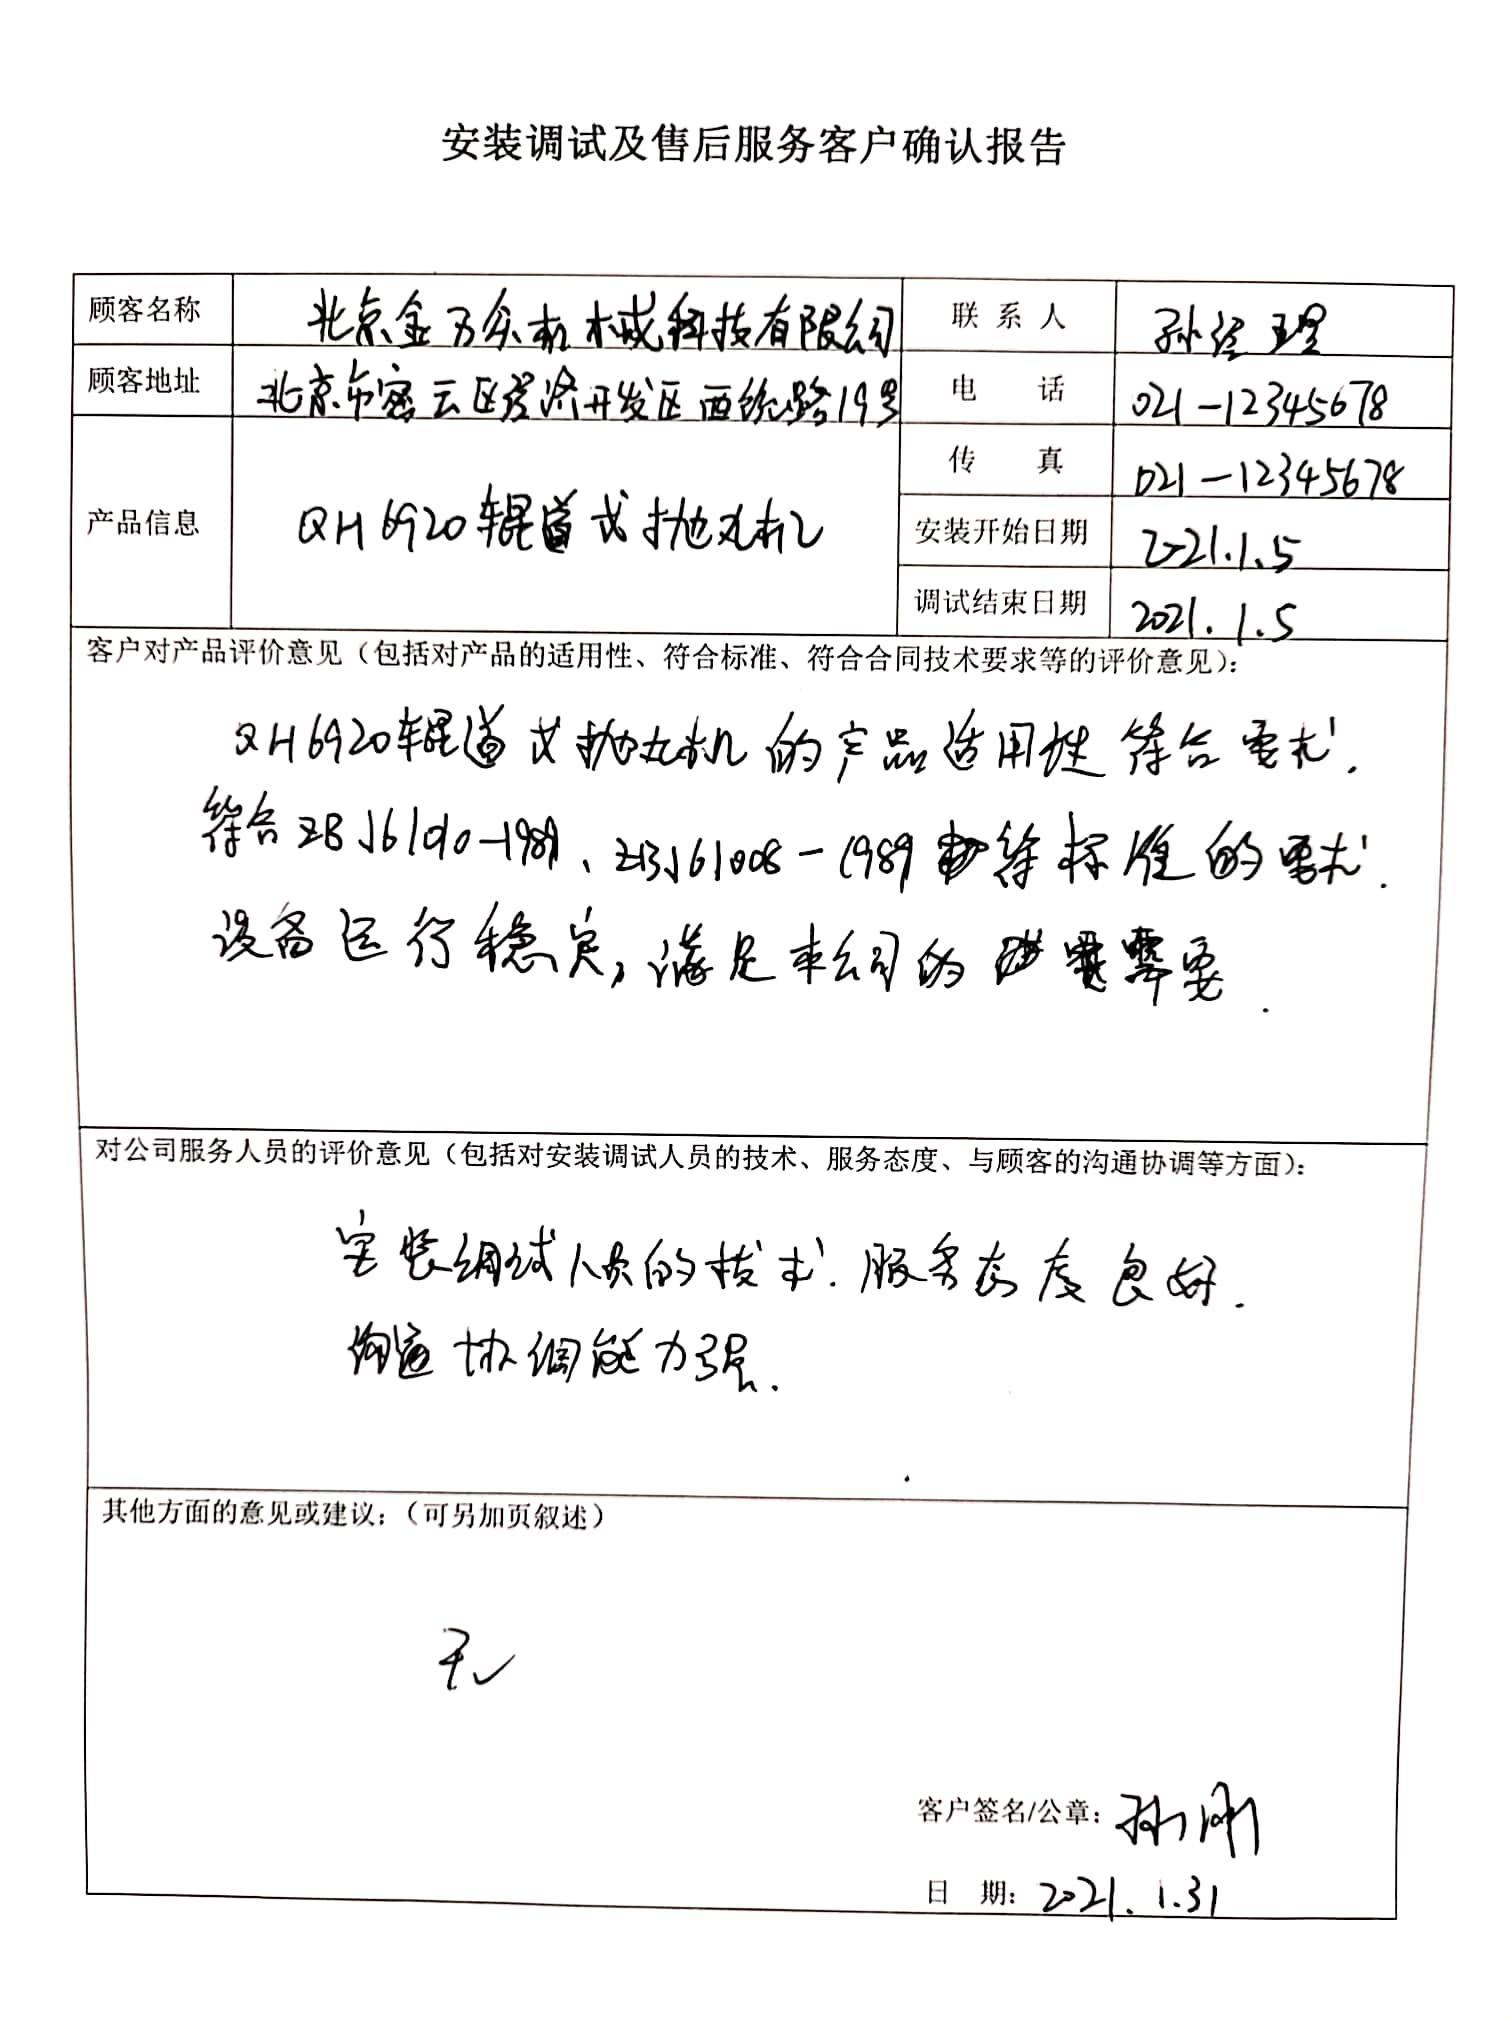 安装调试及售后服务客户确认报告
顾客名称 北京金万众机械科技有限公司 联系人 孙经理
顾客地址 北京市密云区经济开发区西统路19号 电话 021-12345678
产品信息 QH6920辊道式抛丸机 传真 021-12345678
安装开始日期 2021.1.5
调试结束日期 2021.1.5
客户对产品评价意见（包括对产品的适用性、符合标准、符合合同技术要求等的评价意见）：
QH6920辊道式抛丸机的产品适用性符合要求.
符合ZBJ61010-1989、ZBJ61008-1989等标准的要求.
设备运行稳定,满足本公司的需要.
对公司服务人员的评价意见（包括对安装调试人员的技术、服务态度、与顾客的沟通协调等方面）：
安装调试人员的技术.服务态度良好.
沟通协调能力强.
其他方面的意见或建议：（可另加页叙述）
无
客户签名/公章：孙刚
日期：2021.1.31